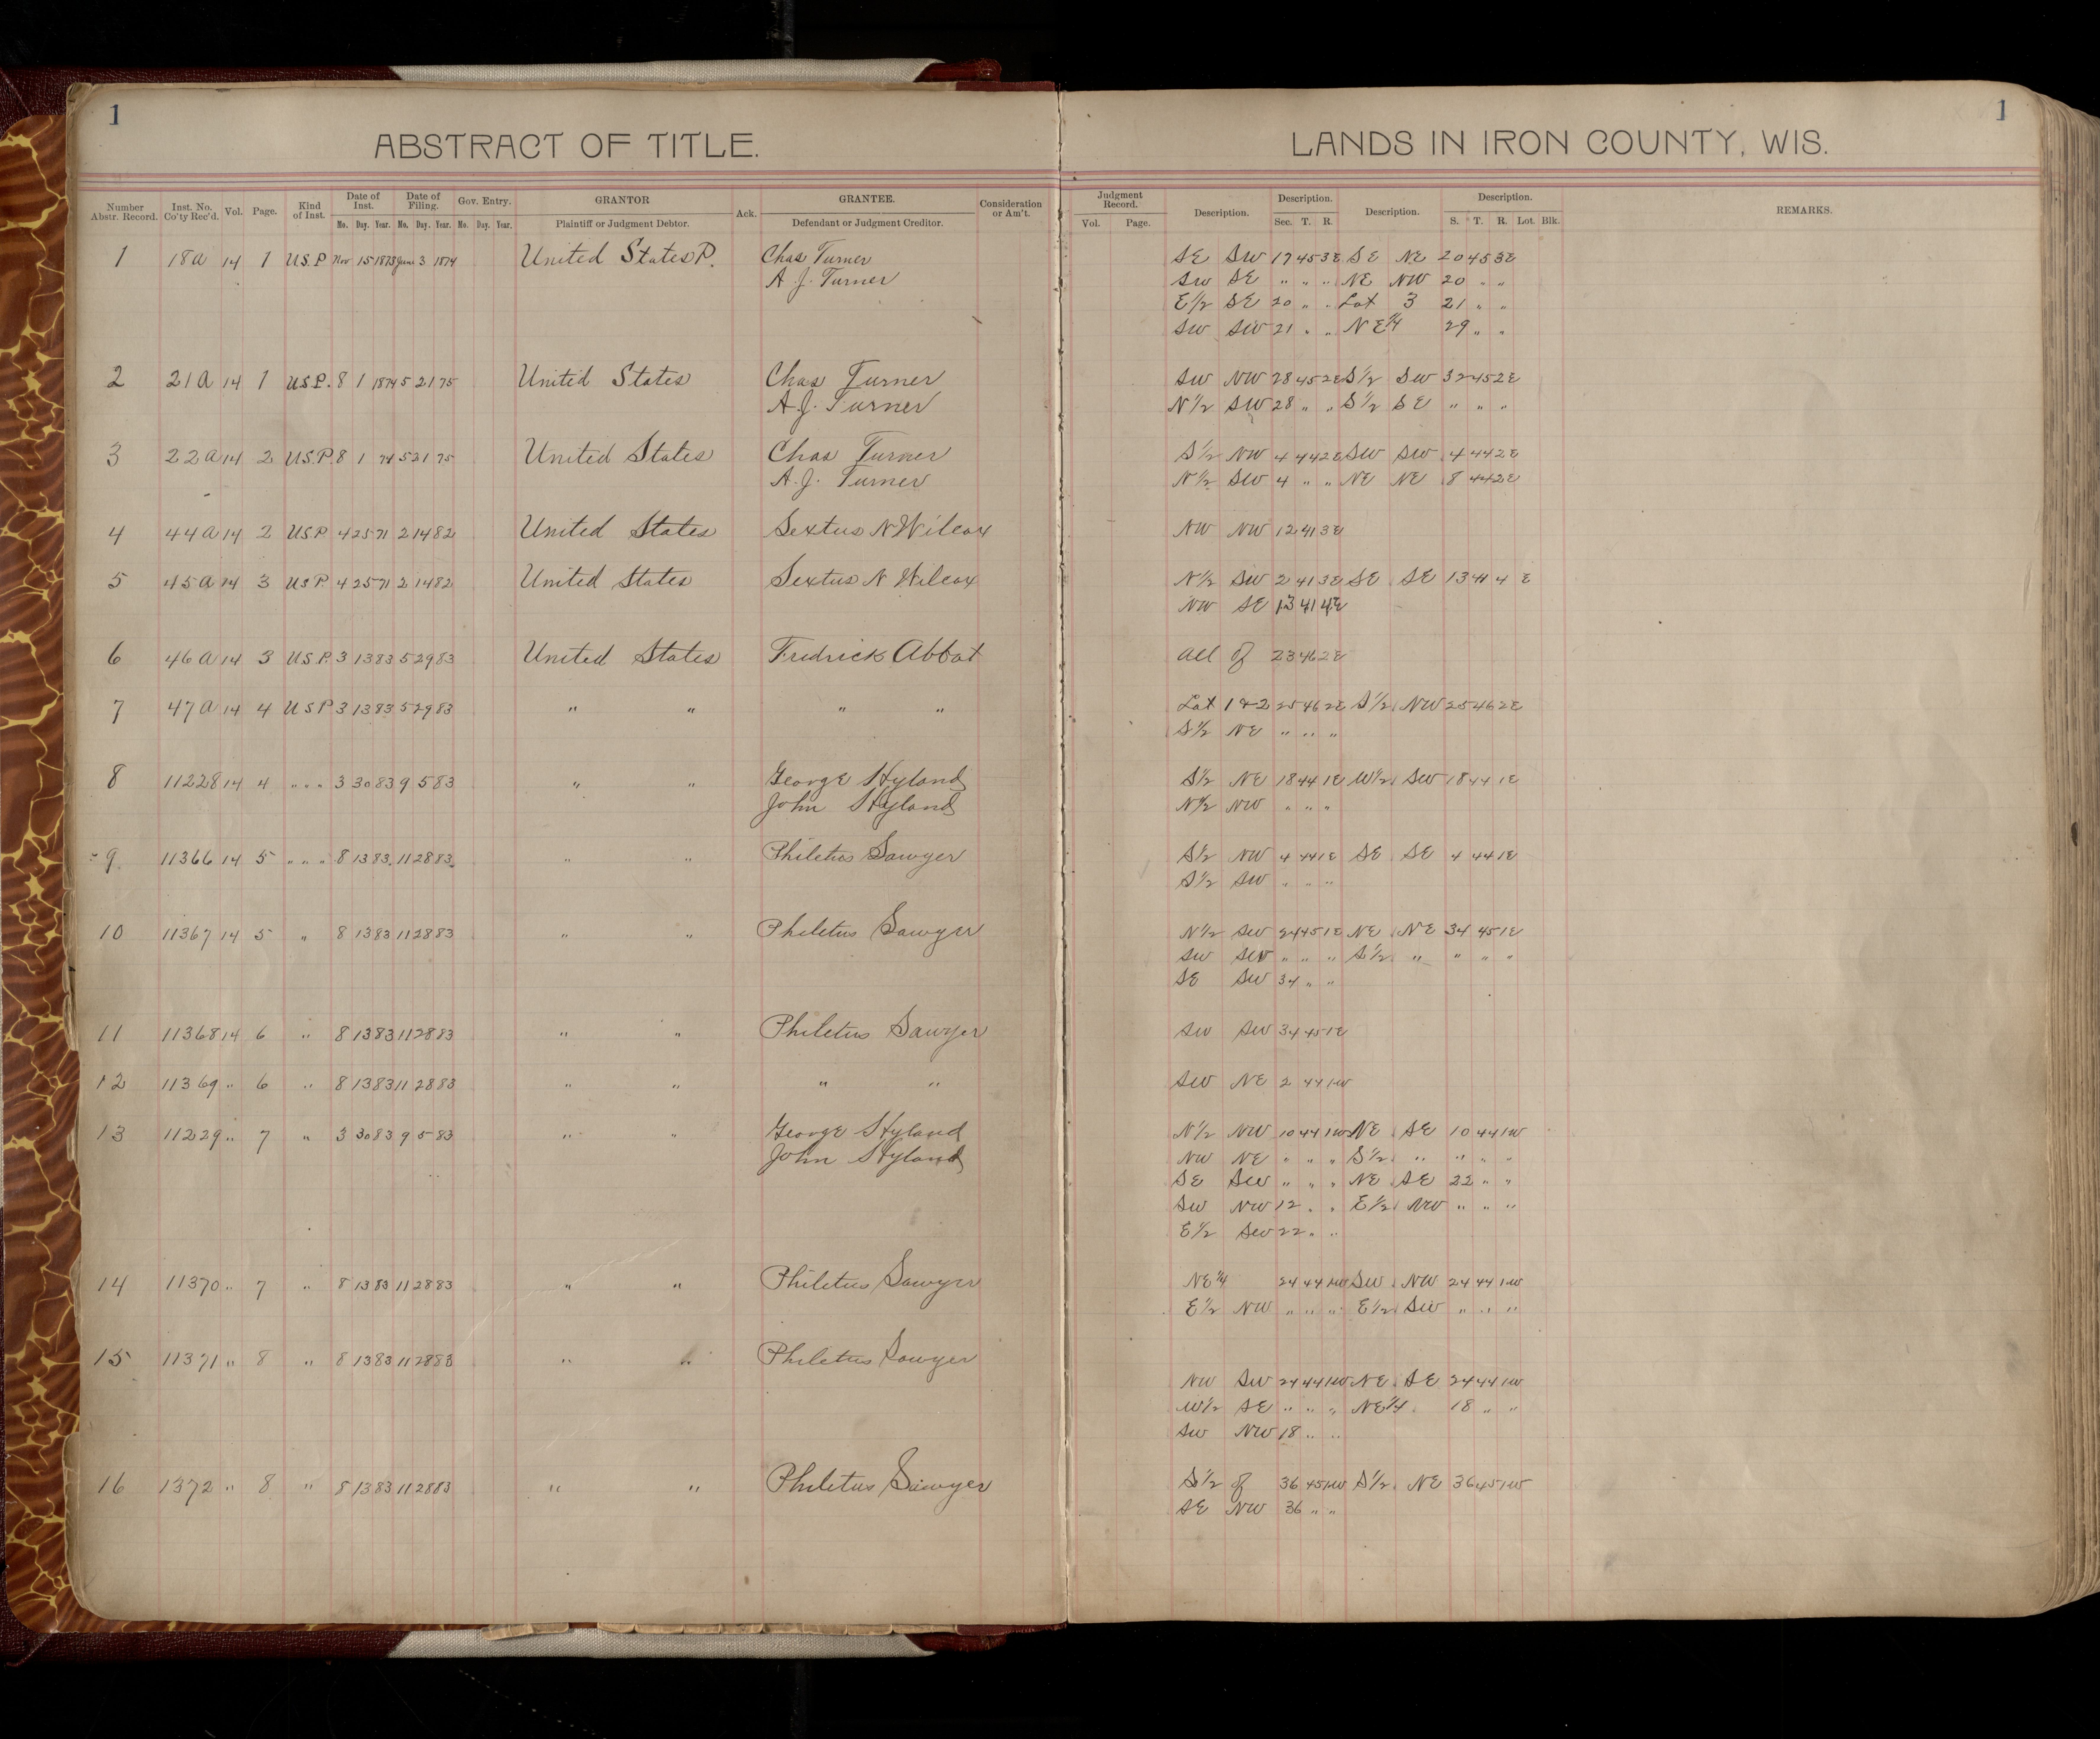 1
1
ABSTRACT OF TITLE. LANDS IN IRON COUNTY, WIS.
Number Abstr. Record. Inst. No. Co'ty Rec'd. Vol. Page. Kind of Inst. Date of Inst. Date of Filing. Gov. Entry. GRANTOR Ack. GRANTEE. Consideration or Am't. Judgment Record. Description. Description. Description. Description. REMARKS.
Mo. Day. Year. Mo. Day. Year. Mo. Day. Year. Plaintiff or Judgment Debtor. Defendant or Judgment Creditor. Vol. Page. Sec. T. R. S. T. R. Lot. Blk.
1 18a 14 1 U.S.P Nov 15 1873 June 3 1874 United States P. Chas Turner SE SW 17 45 3E SE NE 20 45 3E
A. J. Turner SW SE " " " NE NW 20 " "
E 1/2 SE 20 " " Lot 3 21 " "
SW SW 21 " " NE 1/4 29 " "
2 21a 14 1 U.S.P. 8 1 1874 5 21 75 United States Chas Turner SW NW 28 45 2E S 1/2 SW 32 45 2E
A.J. Turner N 1/2 SW 28 " " S 1/2 SE " " "
3 22a 14 2 U.S.P. 8 1 74 5 21 75 United States Chas Turner S 1/2 NW 4 44 2E SW SW 4 44 2E
A.J. Turner N 1/2 SW 4 " " NE NE 8 44 2E
4 44a 14 2 U.S.P. 4 25 71 2 14 82 United States Sextus N Wilcox NW NW 12 41 3E
5 45a 14 3 U.S.P. 4 25 71 2 14 82 United States Sextus N Wilcox N 1/2 SW 2 41 3E SE SE 13 41 4 E
NW SE 13 41 4E
6 46a 14 3 U.S.P. 3 13 83 5 29 83 United States Fredrick Abbot all of 23 46 2E
7 47a 14 4 U.S.P 3 13 83 5 29 83 " " " " Lot 1 & 2 25 46 2E S 1/2 NW 25 46 2E
S 1/2 NE " " " "
8 11228 14 4 " " " 3 30 83 9 5 83 " " George Hyland S 1/2 NE 18 44 1E W 1/2 SW 18 44 1E
John Hyland N 1/2 NW " " "
9 11366 14 5 " " " 8 13 83 11 28 83 " " Philetus Sawyer S 1/2 NW 4 44 1E SE SE 4 44 1E
S 1/2 SW " " "
10 11367 14 5 " 8 13 83 11 28 83 " " Philetus Sawyer N 1/2 SW 24 45 1E NE NE 34 45 1E
SW SW " " " S 1/2 " " " "
SE SW 34 " "
11 11368 14 6 " 8 13 83 11 28 83 " " Philetus Sawyer SW SW 34 45 1E
12 11369 " 6 " 8 13 83 11 28 83 " " " " SW NE 2 44 1W
13 11229 " 7 " 3 30 83 9 5 83 " " George Hyland N 1/2 NW 10 44 1W NE SE 10 44 1W
John Hyland NW NE " " " S 1/2 " " " "
SE SW " " " NE SE 22 " "
SW NW 12 " " E 1/2 NW " " "
E 1/2 SW 22 " "
14 11370 " 7 " 8 13 83 11 28 83 " " Philetus Sawyer NE 1/4 24 44 1W SW NW 24 44 1W
E 1/2 NW " " " E 1/2 SW " " "
15 11371 " 8 " 8 13 83 11 28 83 " " Philetus Sawyer
NW SW 24 44 1W NE SE 24 44 1W
W 1/2 SE " " " NE 1/4 18 " "
SW NW 18 " "
16 1372 " 8 " 8 13 83 11 28 83 " " Philetus Sawyer S 1/2 of 36 45 1W S 1/2 NE 36 45 1W
SE NW 36 " "